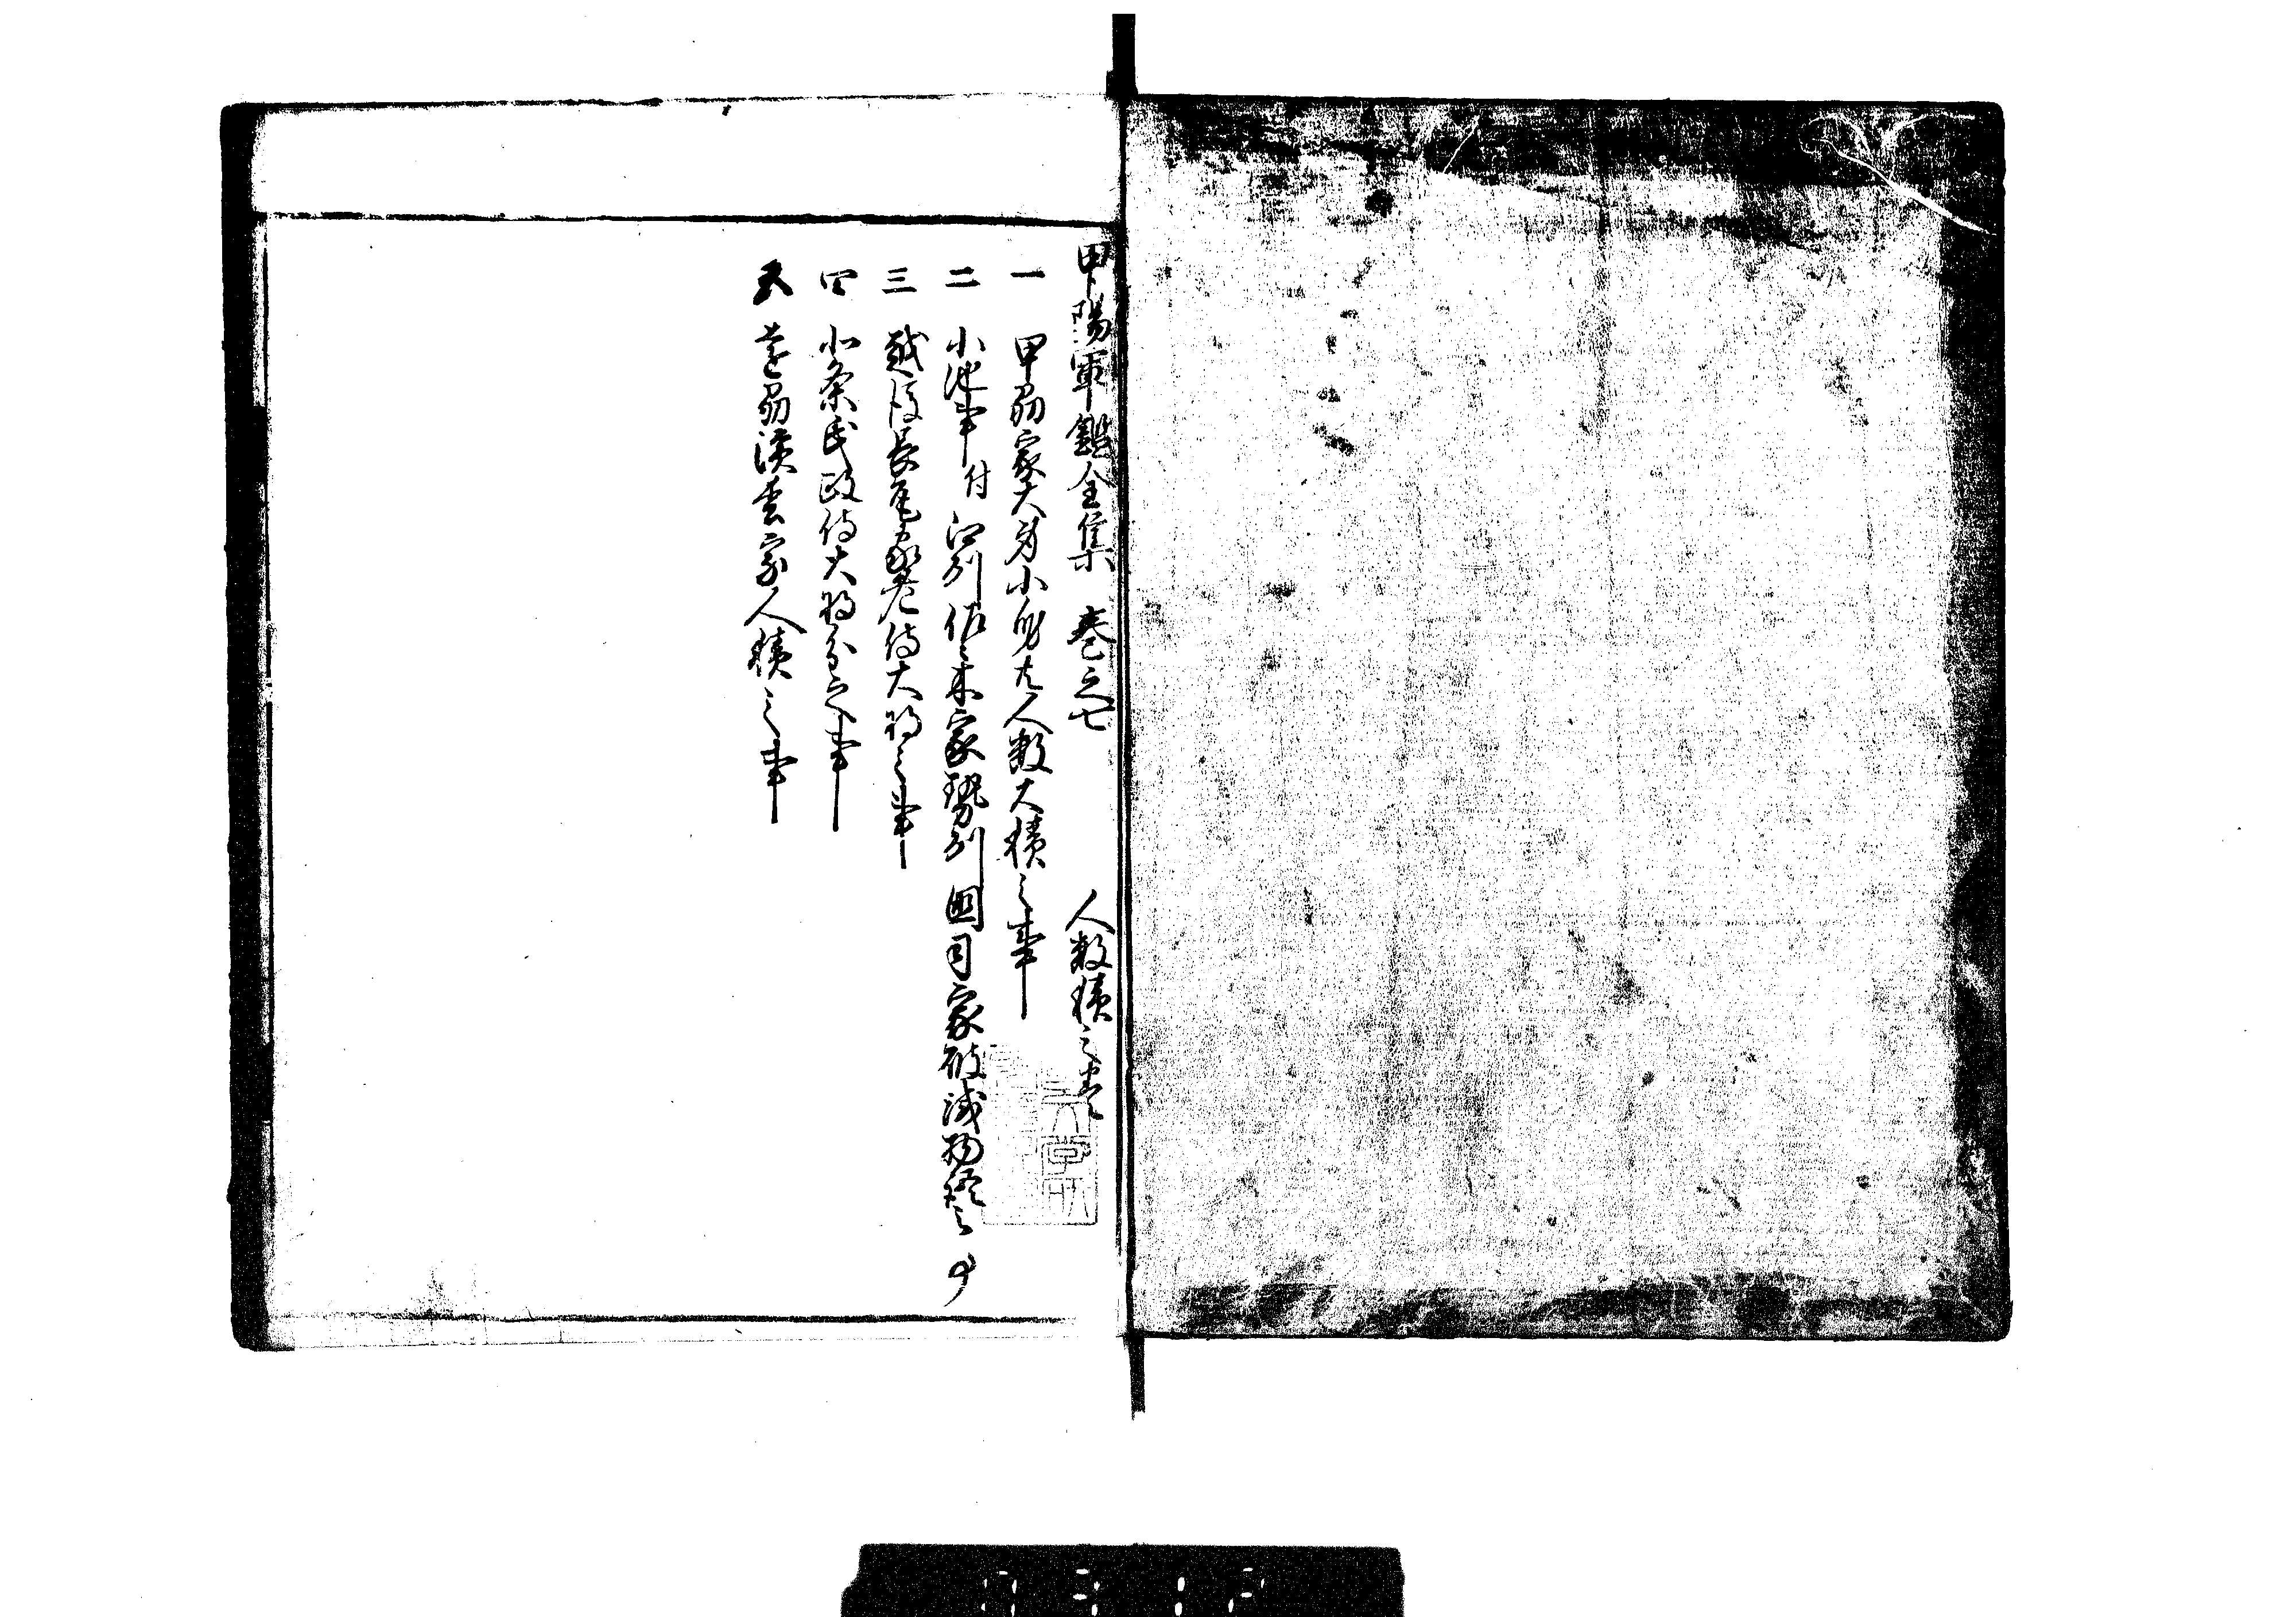 甲陽軍鑑全集 巻之七 人数積之巻
一 甲州家大身小身共人数大積之事
二 小身事付江州佐々木家勢州国司家破滅物語之事
三 越後長尾家老侍大将之事
四 北条氏政侍大将分之事
五 遠州浜松家人積之事